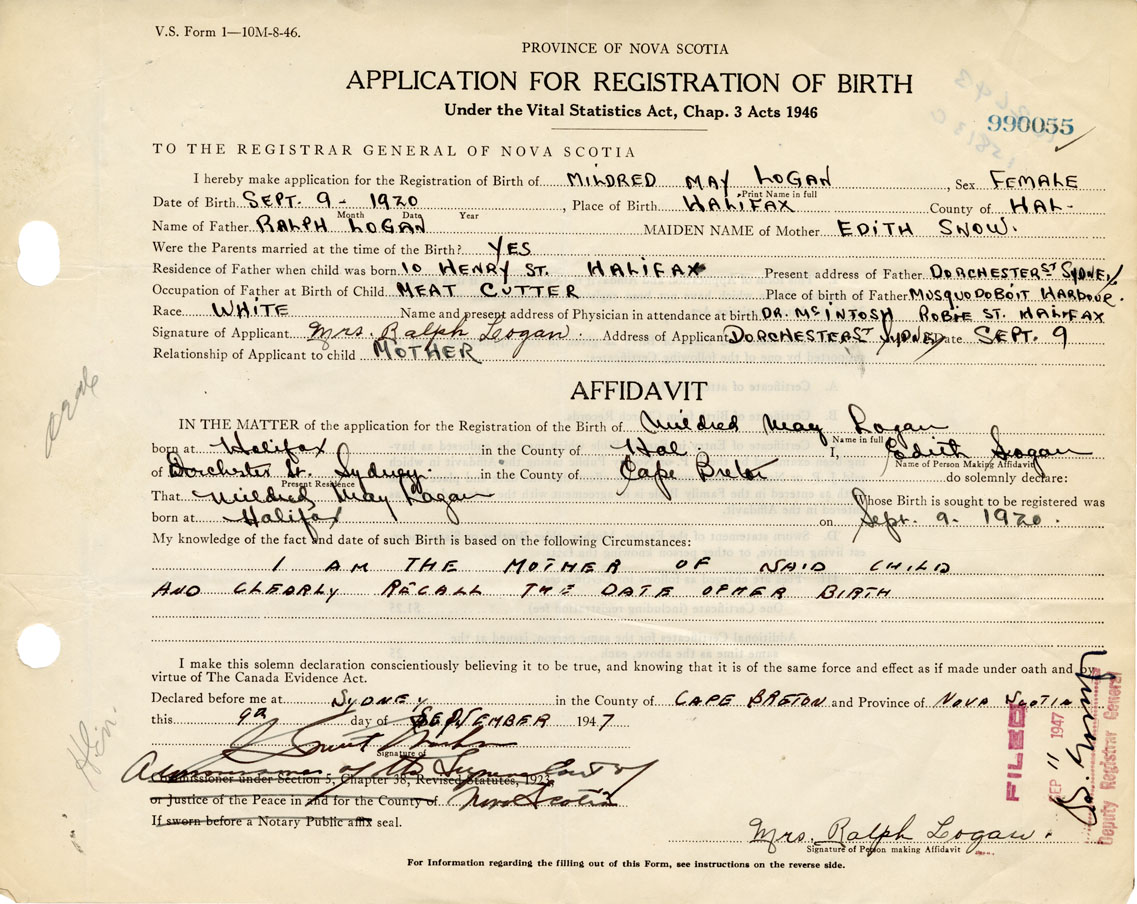 V.S. Form 1—10M-8-46.
PROVINCE OF NOVA SCOTIA
APPLICATION FOR REGISTRATION OF BIRTH
Under the Vital Statistics Act, Chap. 3 Acts 1946
990055
TO THE REGISTRAR GENERAL OF NOVA SCOTIA
I hereby make application for the Registration of Birth of MILDRED MAY LOGAN, Sex FEMALE
Print Name in full
Date of Birth SEPT. 9 - 1920, Place of Birth HALIFAX County of HAL-
Month Date Year
Name of Father RALPH LOGAN MAIDEN NAME of Mother EDITH SNOW.
Were the Parents married at the time of the Birth? YES
Residence of Father when child was born 10 HENRY ST. HALIFAX Present address of Father DORCHESTER ST SYDNEY
Occupation of Father at Birth of Child MEAT CUTTER Place of birth of Father MUSQUODOBOIT HARBOUR.
Race WHITE Name and present address of Physician in attendance at birth DR. McINTOSH ROBIE ST. HALIFAX
Signature of Applicant Mrs. Ralph Logan. Address of Applicant DORCHESTER ST SYDNEY Date SEPT. 9
Relationship of Applicant to child MOTHER
AFFIDAVIT
IN THE MATTER of the application for the Registration of the Birth of Mildred May Logan
Name in full
born at Halifax in the County of Hal. I, Edith Logan
Name of Person Making Affidavit
of Dorchester St. Sydney. in the County of Cape Breton do solemnly declare:
Present Residence
That Mildred May Logan Whose Birth is sought to be registered was
born at Halifax on Sept. 9. 1920.
My knowledge of the fact and date of such Birth is based on the following Circumstances:
I AM THE MOTHER OF SAID CHILD
AND CLEARLY RECALL THE DATE OF HER BIRTH
I make this solemn declaration conscientiously believing it to be true, and knowing that it is of the same force and effect as if made under oath and by
virtue of The Canada Evidence Act.
Declared before me at SYDNEY in the County of CAPE BRETON and Province of NOVA SCOTIA
this 9th day of SEPTEMBER 1947
Signature of
of the Supreme Court of
Commissioner under Section 5, Chapter 38, Revised Statutes, 1923
or Justice of the Peace in and for the County of Nova Scotia
If sworn before a Notary Public affix seal.
FILED
SEP 11 1947
Deputy Registrar General
Mrs. Ralph Logan.
Signature of Person making Affidavit
For Information regarding the filling out of this Form, see instructions on the reverse side.